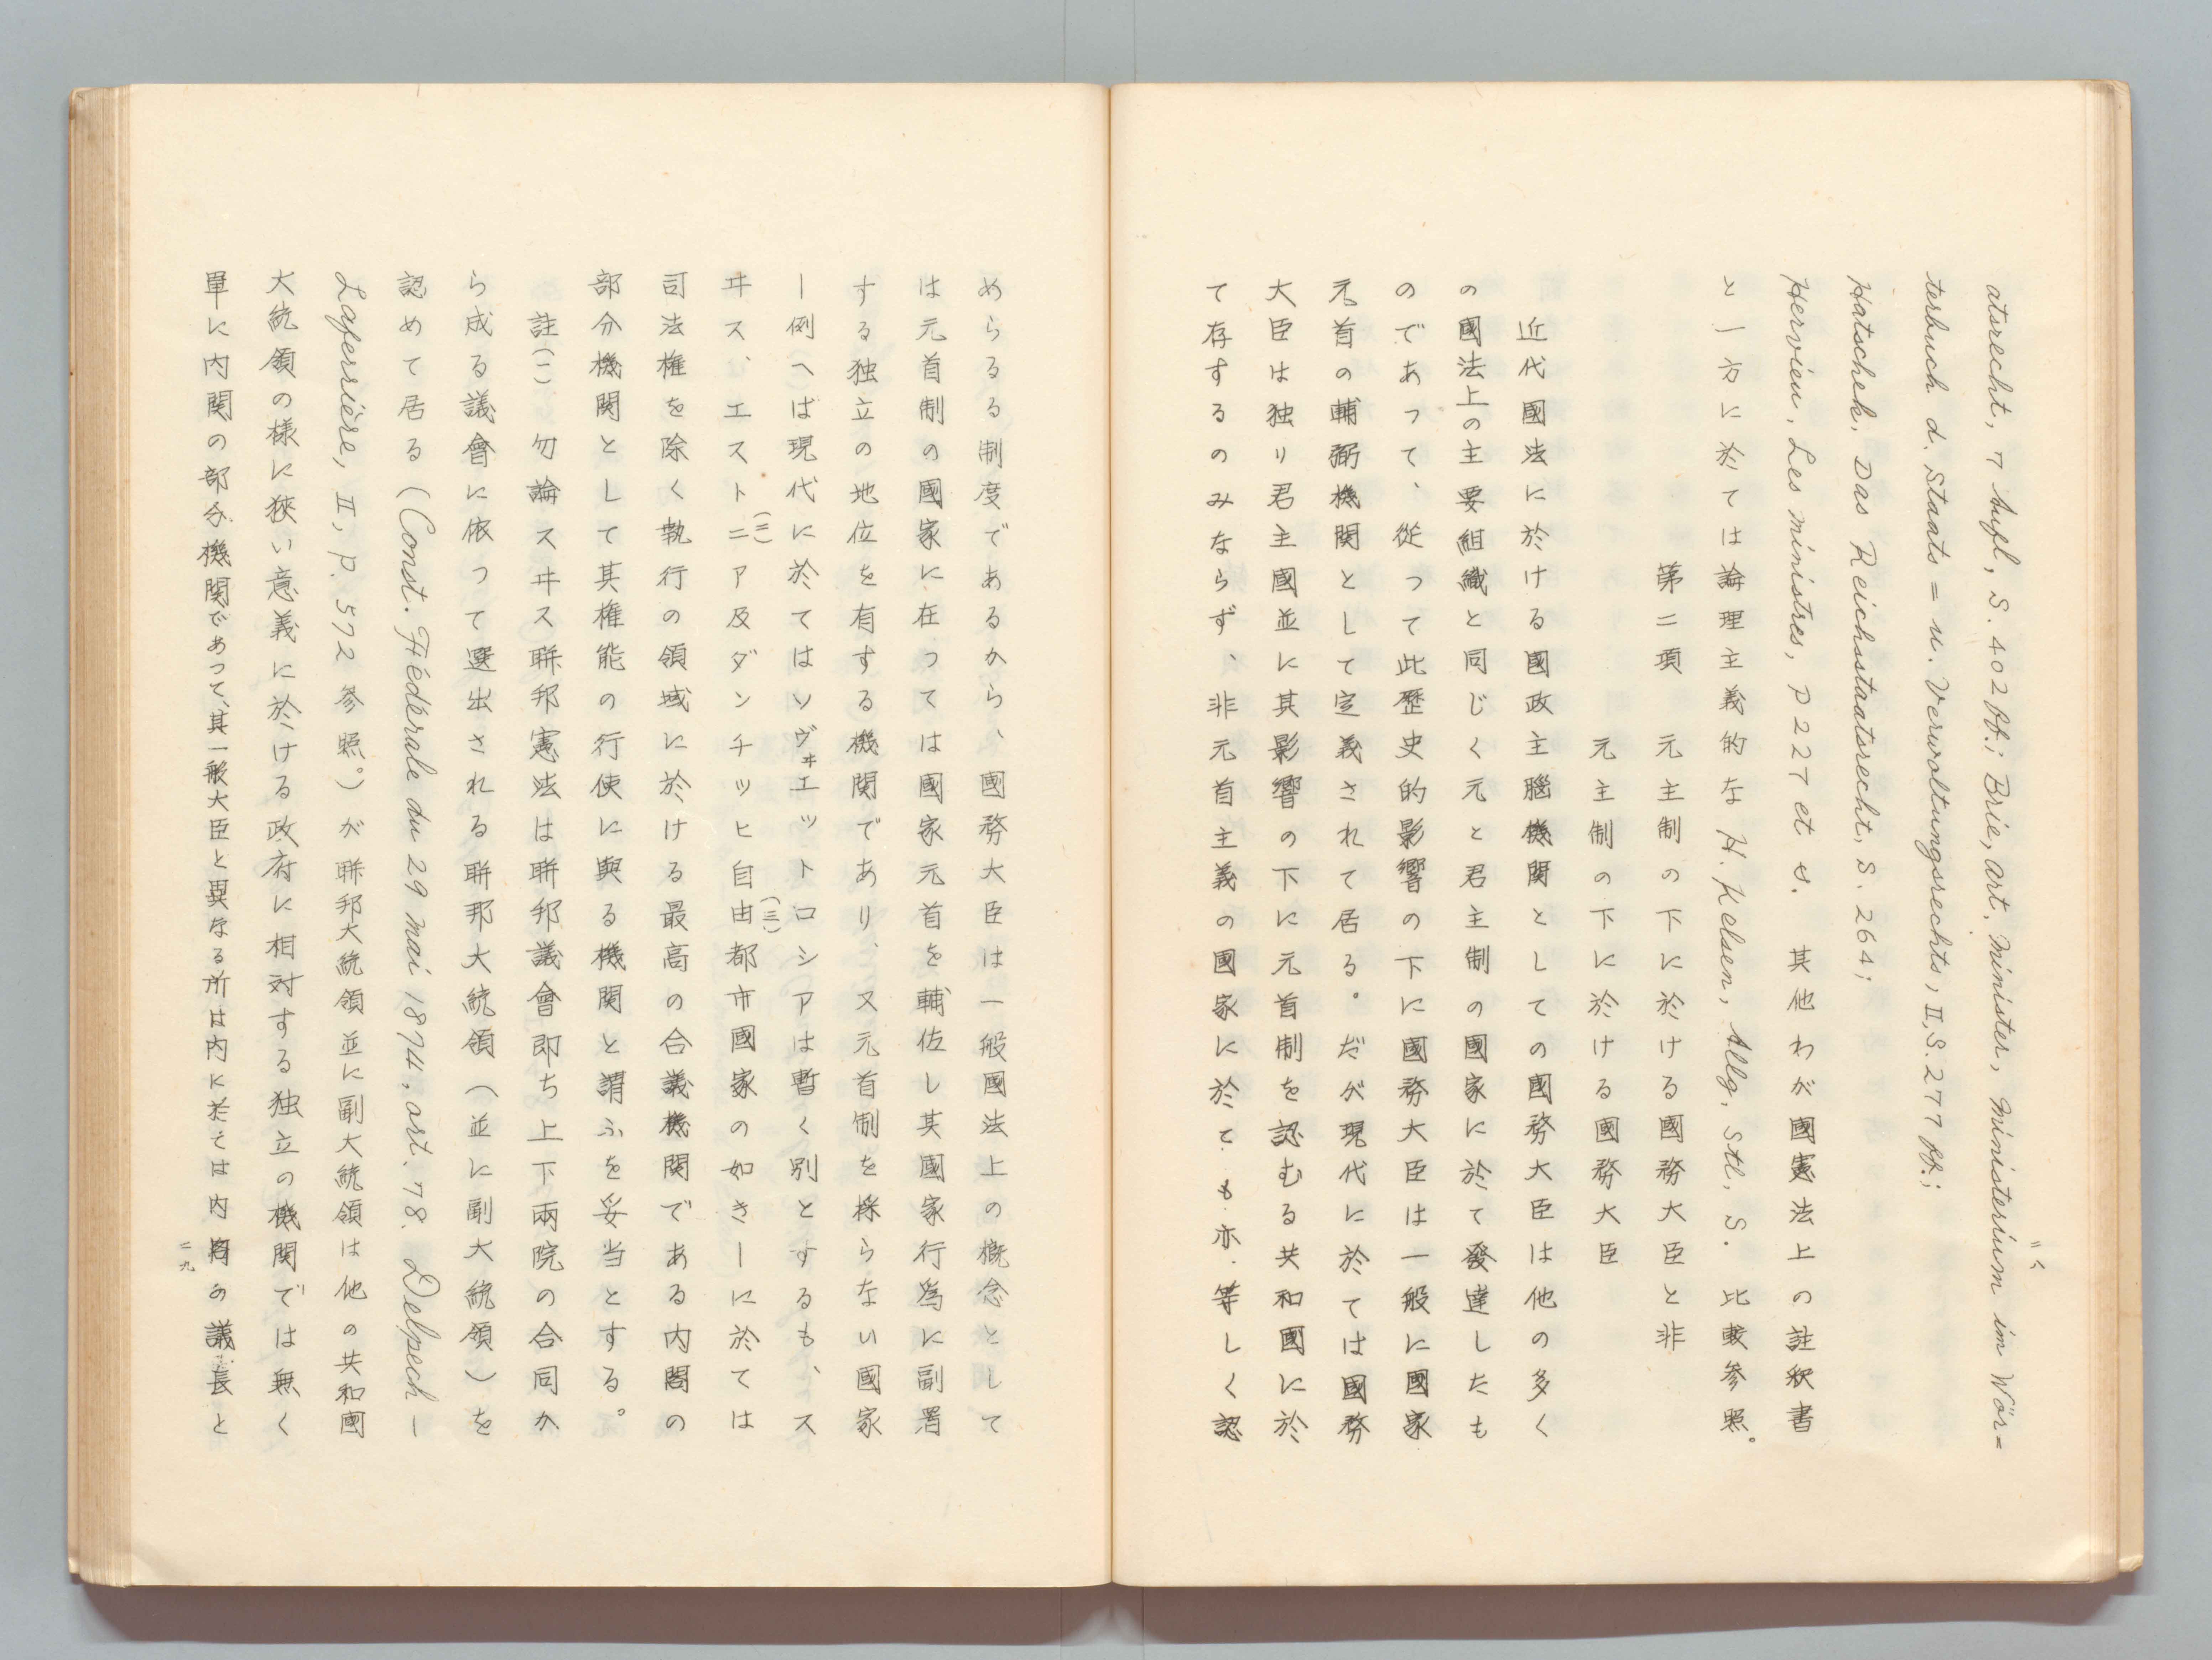 二八
atsrecht, 7 Aufl, S. 402 ff.; Brie, Art. Minister, Ministerium im Wör=
terbuch d. Staats = u. Verwaltungsrechts, II, S. 277 ff.;
Hatschek, Das Reichsstaatsrecht, S. 264;
Hervieu, Les ministres, P 227 et s. 其他わが國憲法上の註釈書
と一方に於ては論理主義的な H. Kelsen, Allg. Stl, S. 比較参照。
第二項 元主制の下に於ける國務大臣と非
元主制の下に於ける國務大臣
近代國法に於ける國政主腦機関としての國務大臣は他の多く
の國法上の主要組織と同じく元と君主制の國家に於て發達したも
のであつて、從つて此歴史的影響の下に國務大臣は一般に國家
元首の輔弼機関として定義されて居る。だが現代に於ては國務
大臣は独り君主國並に其影響の下に元首制を認むる共和國に於
て存するのみならず、非元首主義の國家に於ても亦等しく認
めらるる制度であるから、國務大臣は一般國法上の概念として
は元首制の國家に在つては國家元首を輔佐し其國家行爲に副署
する独立の地位を有する機関であり、又元首制を採らない國家
ー例へば現代に於てはソヴヰエツトロシアは暫く別とするも、ス
ヰス、エストニア(二)及ダンチツヒ自由都市國家(三)の如きーに於ては
司法権を除く執行の領域に於ける最高の合議機関である内閣の
部分機関として其権能の行使に與る機関と謂ふを妥当とする。
註(一) 勿論スヰス聯邦憲法は聯邦議會即ち上下兩院の合同か
ら成る議會に依つて選出される聯那大統領(並に副大統領)を
認めて居る(Const. Fédérale du 29 mai 1874, art. 78. Delpech ―
Laferrière, II, P. 572 参照。)が聯邦大統領並に副大統領は他の共和國
大統領の様に狹い意義に於ける政府に相対する独立の機関では無く
単に内閣の部分機関であつて、其一般大臣と異なる所は内に於ては内閣の議長と
二九